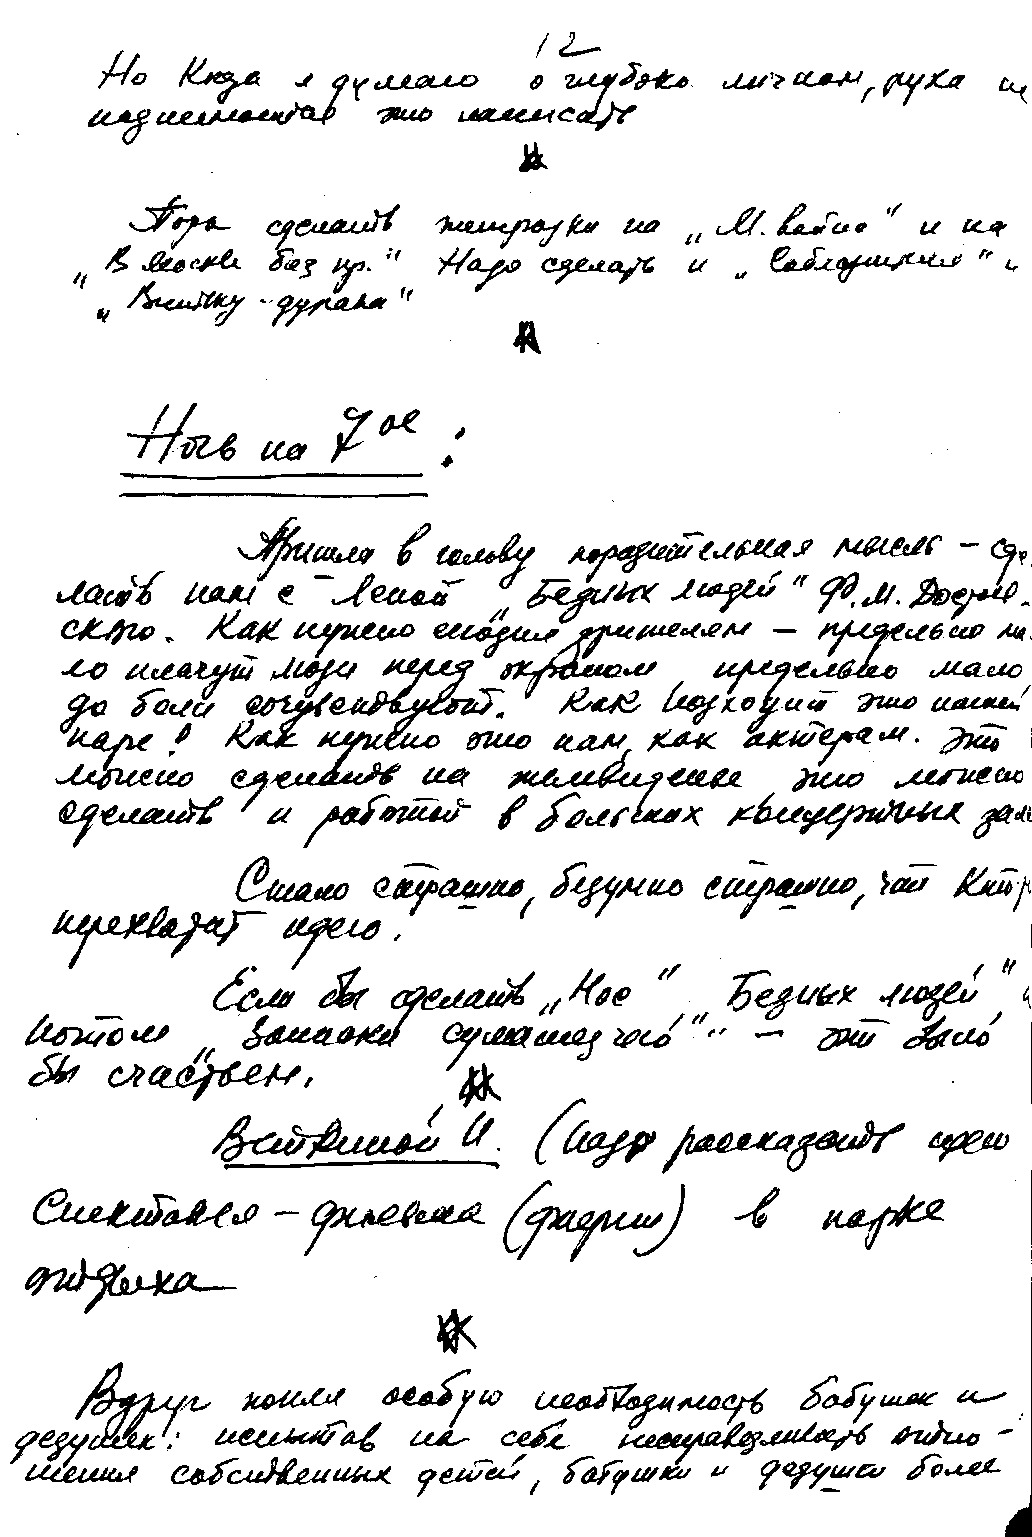 12
Но когда я думаю о глубоко личном, рука не
поднимается это написать
Пора сделать тетрадки на „М. войне" и на
„В Москве баз пр." Надо сделать и „Соблазнителя" и
„Ваньку-дурака"
Ночь на 7ое:
Пришла в голову поразительная мысль – сде
лать нам с Леной „Бедных людей" Ф.М. Достоев-
ского. Как нужно сегодня зрителям – предельно ма-
ло плачут люди перед экраном, предельно мало
до боли сочувствуют. Как подходит это нашей
паре! Как нужно это нам, как актерам. Это
можно сделать на телевиденье, это можно
сделать и работой в больших концертных зала
Стало страшно, безумно страшно, что кто
перехватит идею.
Если бы сделать „Нос" „Бедных людей" и
потом „Записки сумасшедшего" – это было
бы счастьем.
И. (Надо рассказать идею
Спектакля – фильма (феерии) в парке
отдыха
Вдруг понял особую необходимость бабушек и
дедушек: испытав на себе несправедливость отно-
шения собственных детей, бабушки и дедушки более